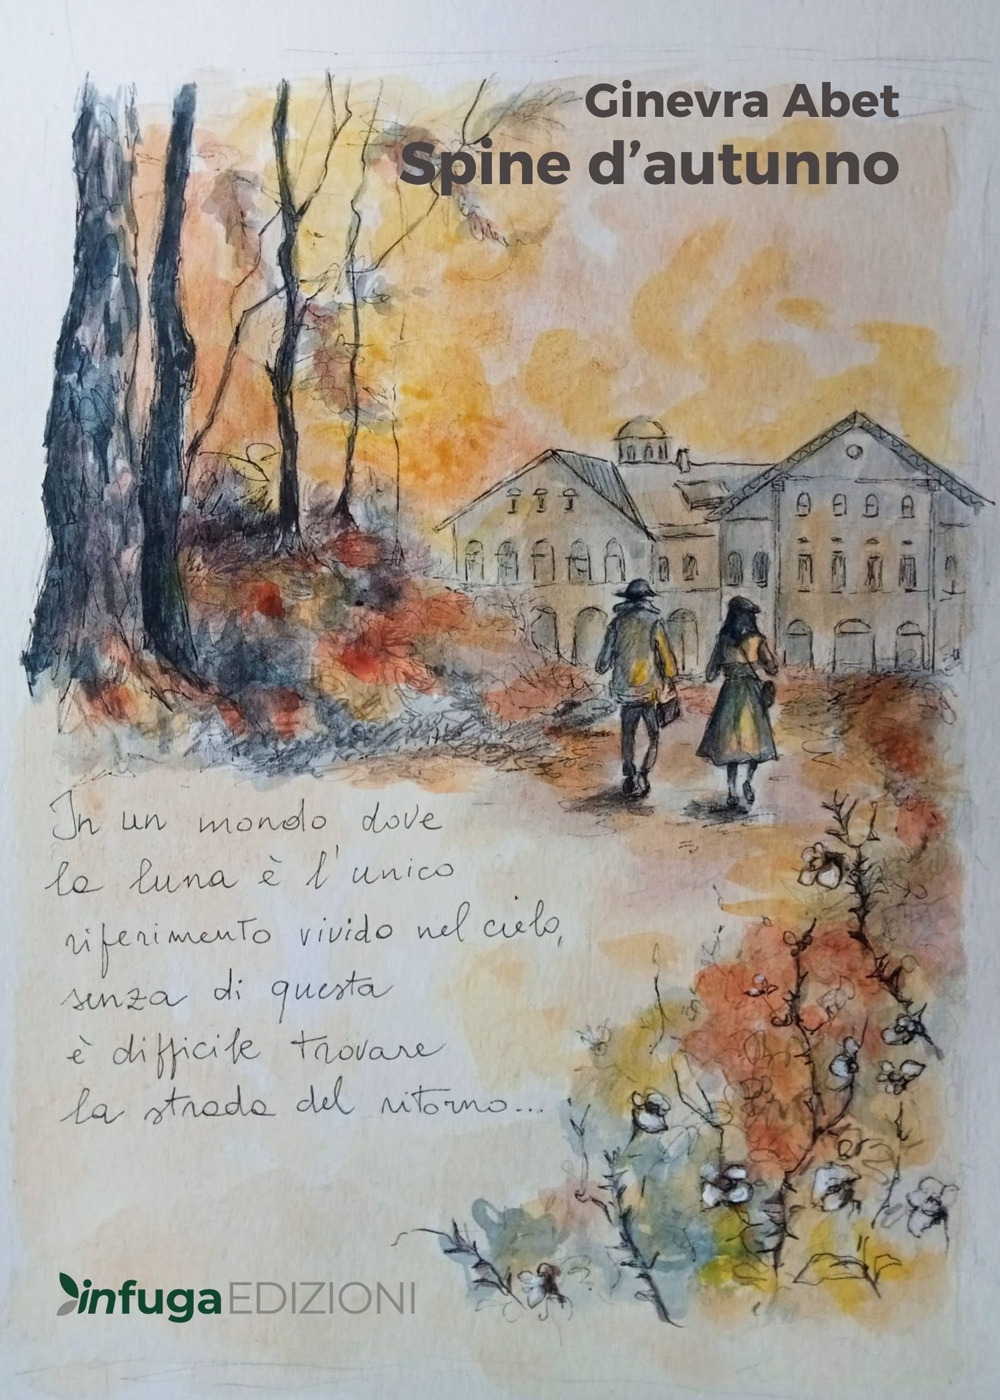 Ginevra Abet
Spine d’autunno
In un mondo dove
la luna è l'unico
riferimento vivido nel cielo,
senza di questa
è difficile trovare
la strada del ritorno...
infugaEDIZIONI